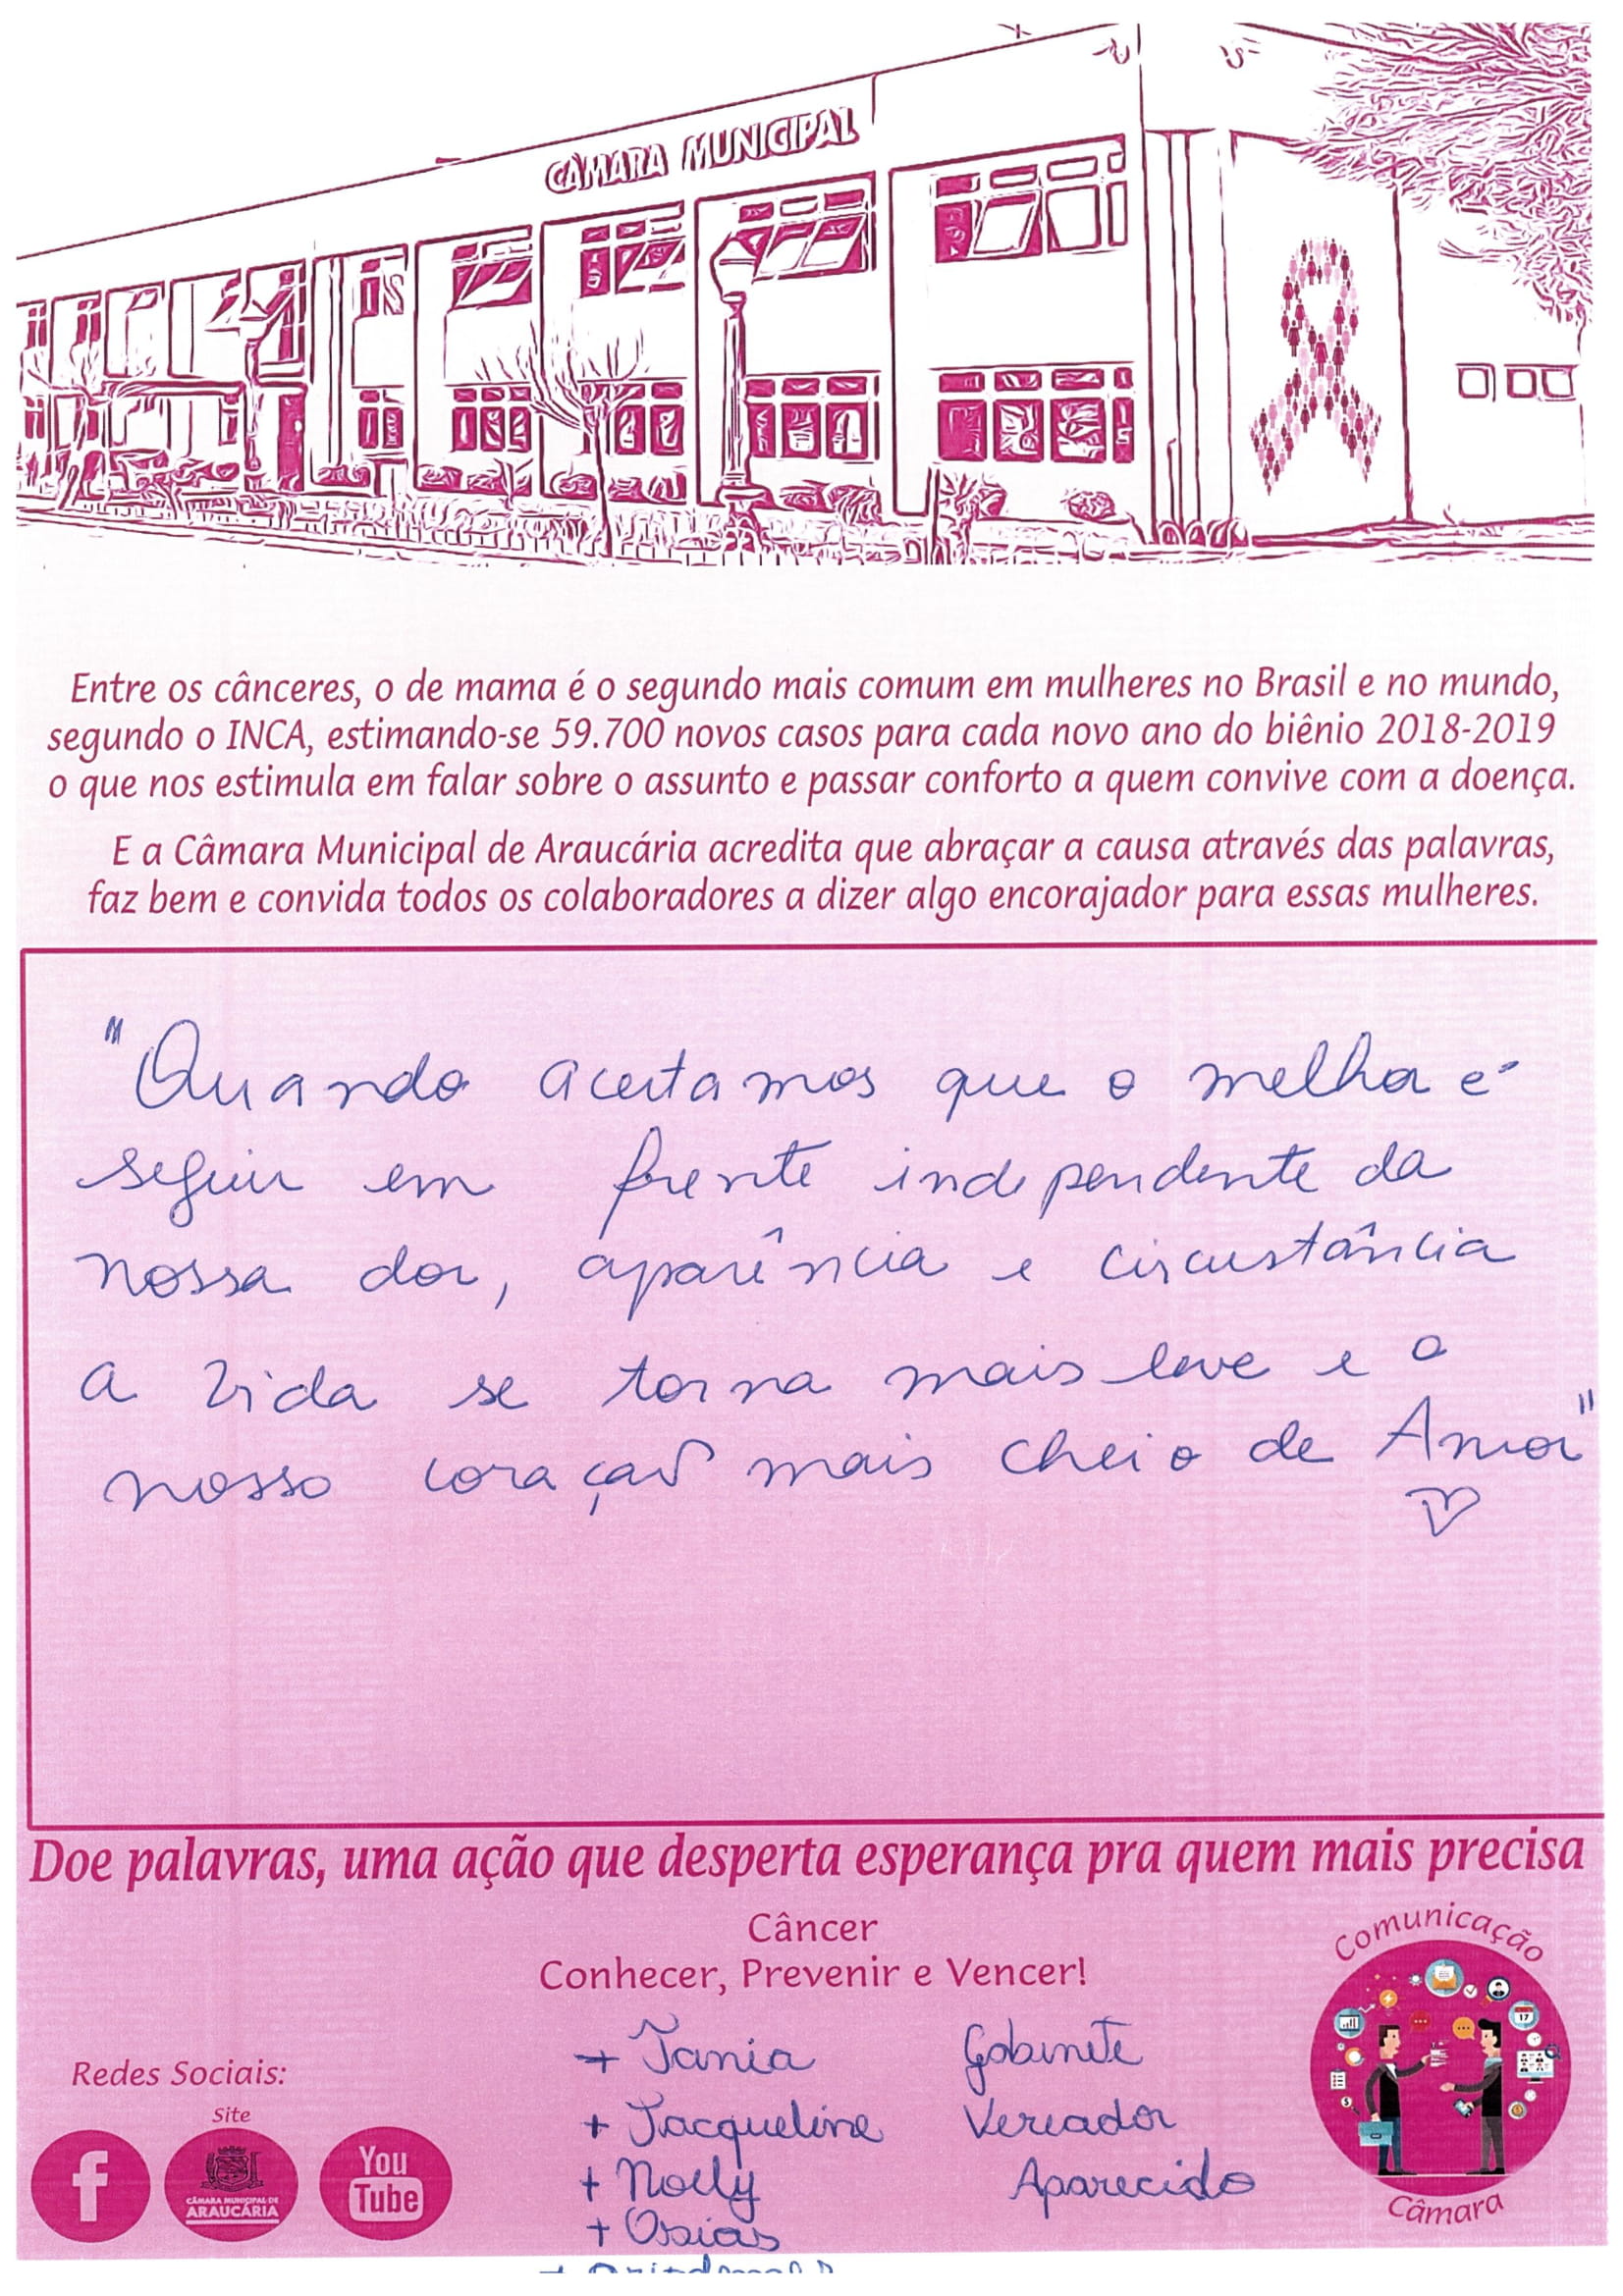 CÂMARA MUNICIPAL
Entre os cânceres, o de mama é o segundo mais comum em mulheres no Brasil e no mundo,
segundo o INCA, estimando-se 59.700 novos casos para cada novo ano do biênio 2018-2019
o que nos estimula em falar sobre o assunto e passar conforto a quem convive com a doença.
E a Câmara Municipal de Araucária acredita que abraçar a causa através das palavras,
faz bem e convida todos os colaboradores a dizer algo encorajador para essas mulheres.
"Quando aceitamos que o melhor é
seguir em frente independente da
nossa dor, aparência e circustância
a vida se torna mais leve e o
nosso coração mais cheio de Amor"
Doe palavras, uma ação que desperta esperança pra quem mais precisa
Câncer
Conhecer, Prevenir e Vencer!
Comunicação
17
Câmara
+ Tania Gabinete
+ Jacqueline Vereador
+ Noely Aparecido
+ Osias
Redes Sociais:
Site
f
CÂMARA MUNICIPAL DE
ARAUCÁRIA
You
Tube